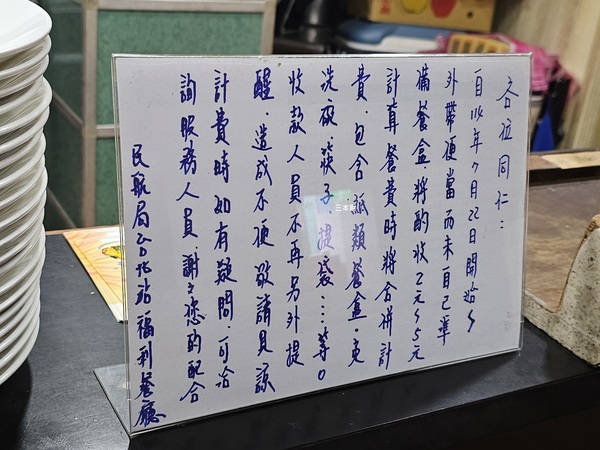 各位同仁：
自114年7月22日開始，
外帶便當而未自己準
備餐盒.將酌收2元~5元
計算餐費時將合併計
費.包含紙類餐盒.免
洗碗.筷子.提袋…等。
收款人員不再另外提
醒.造成不便敬請見諒
計費時如有疑問.可洽
詢服務人員.謝々您的配合
民航局台北站福利餐廳